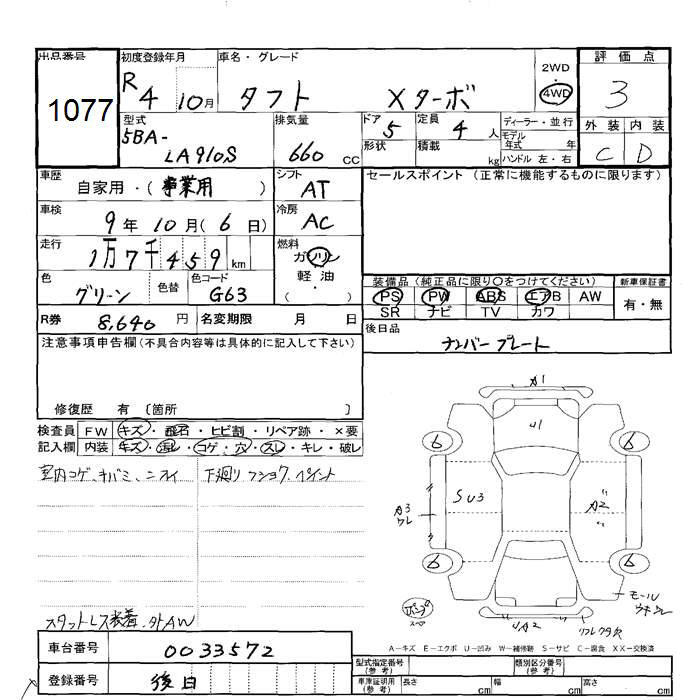 出品番号 初度登録年月 車名・グレード 2WD・4WD 評価点
1077 R4 10月 タフト Xターボ 3
型式 排気量 ドア 定員 ディーラー・並行 外装 内装
5BA-LA910S 660cc 5 4人 モデル年式 年 C D
形状 積載 kg ハンドル 左・右
車歴 自家用・(事業用) シフト AT セールスポイント(正常に機能するものに限ります)
車検 9年10月(6日) 冷房 AC
走行 1万7千459km 燃料 ガソリン・軽油 ( )
装備品(純正品に限り○をつけてください) 新車保証書
色 グリーン 色替 色コード G63 PS PW ABS エアB AW 有・無
SR ナビ TV カワ
R券 8,640円 名変期限 月 日 後日品
ナンバープレート
注意事項申告欄(不具合内容等は具体的に記入して下さい)
修復歴 有 〔箇所 〕
A1
U1
検査員 FW キズ・飛石・ヒビ割・リペア跡・×要
記入欄 内装 キズ・汚レ・コゲ・穴・スレ・キレ・破レ
6 6
室内コゲ、キバミ、ニオイ 下廻り フショク、ペイント
SU3 A2
A3 ワレ
6 6
モール ウキ
スタットレス装着、外AW
UA2 ワレ
A-キズ E-エクボ U-凹み W-補修跡 S-サビ C-腐食 XX-交換済
車台番号 0033572
型式指定番号(参考) 類別区分番号(参考)
登録番号 後日 車庫証明用(参考) 長さ cm 幅 cm 高さ cm